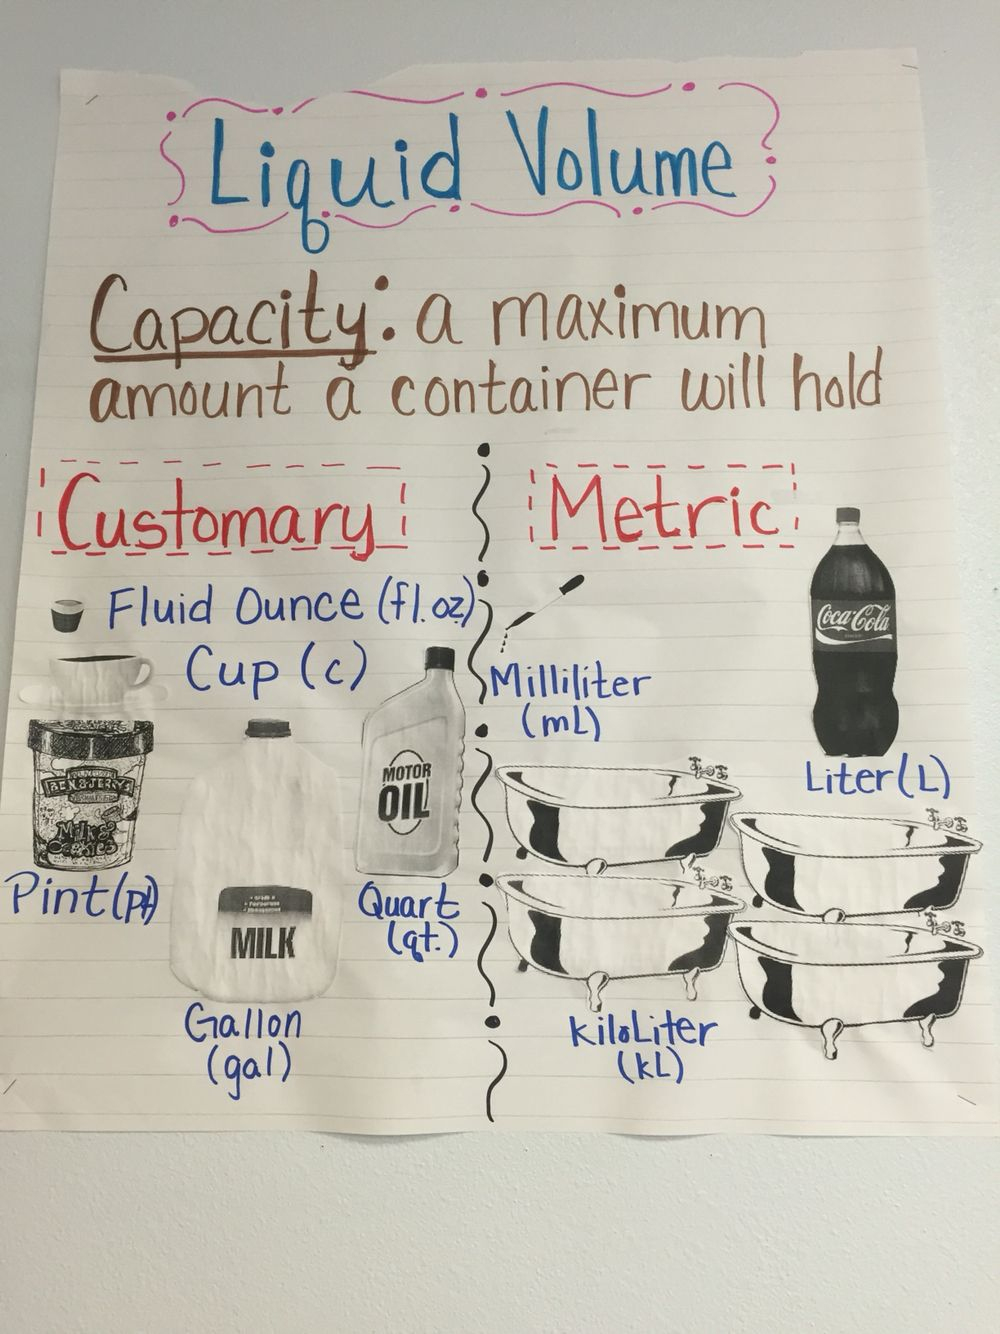 Liquid Volume
Capacity: a maximum
amount a container will hold
Customary
Fluid Ounce (fl.oz)
Cup (c)
BEN & JERRY'S
Milk &
Cookies
Pint (pt)
MILK
Gallon
(gal)
MOTOR
OIL
Quart
(qt.)
Metric
Milliliter
(mL)
Coca-Cola
Liter (L)
kiloLiter
(kL)